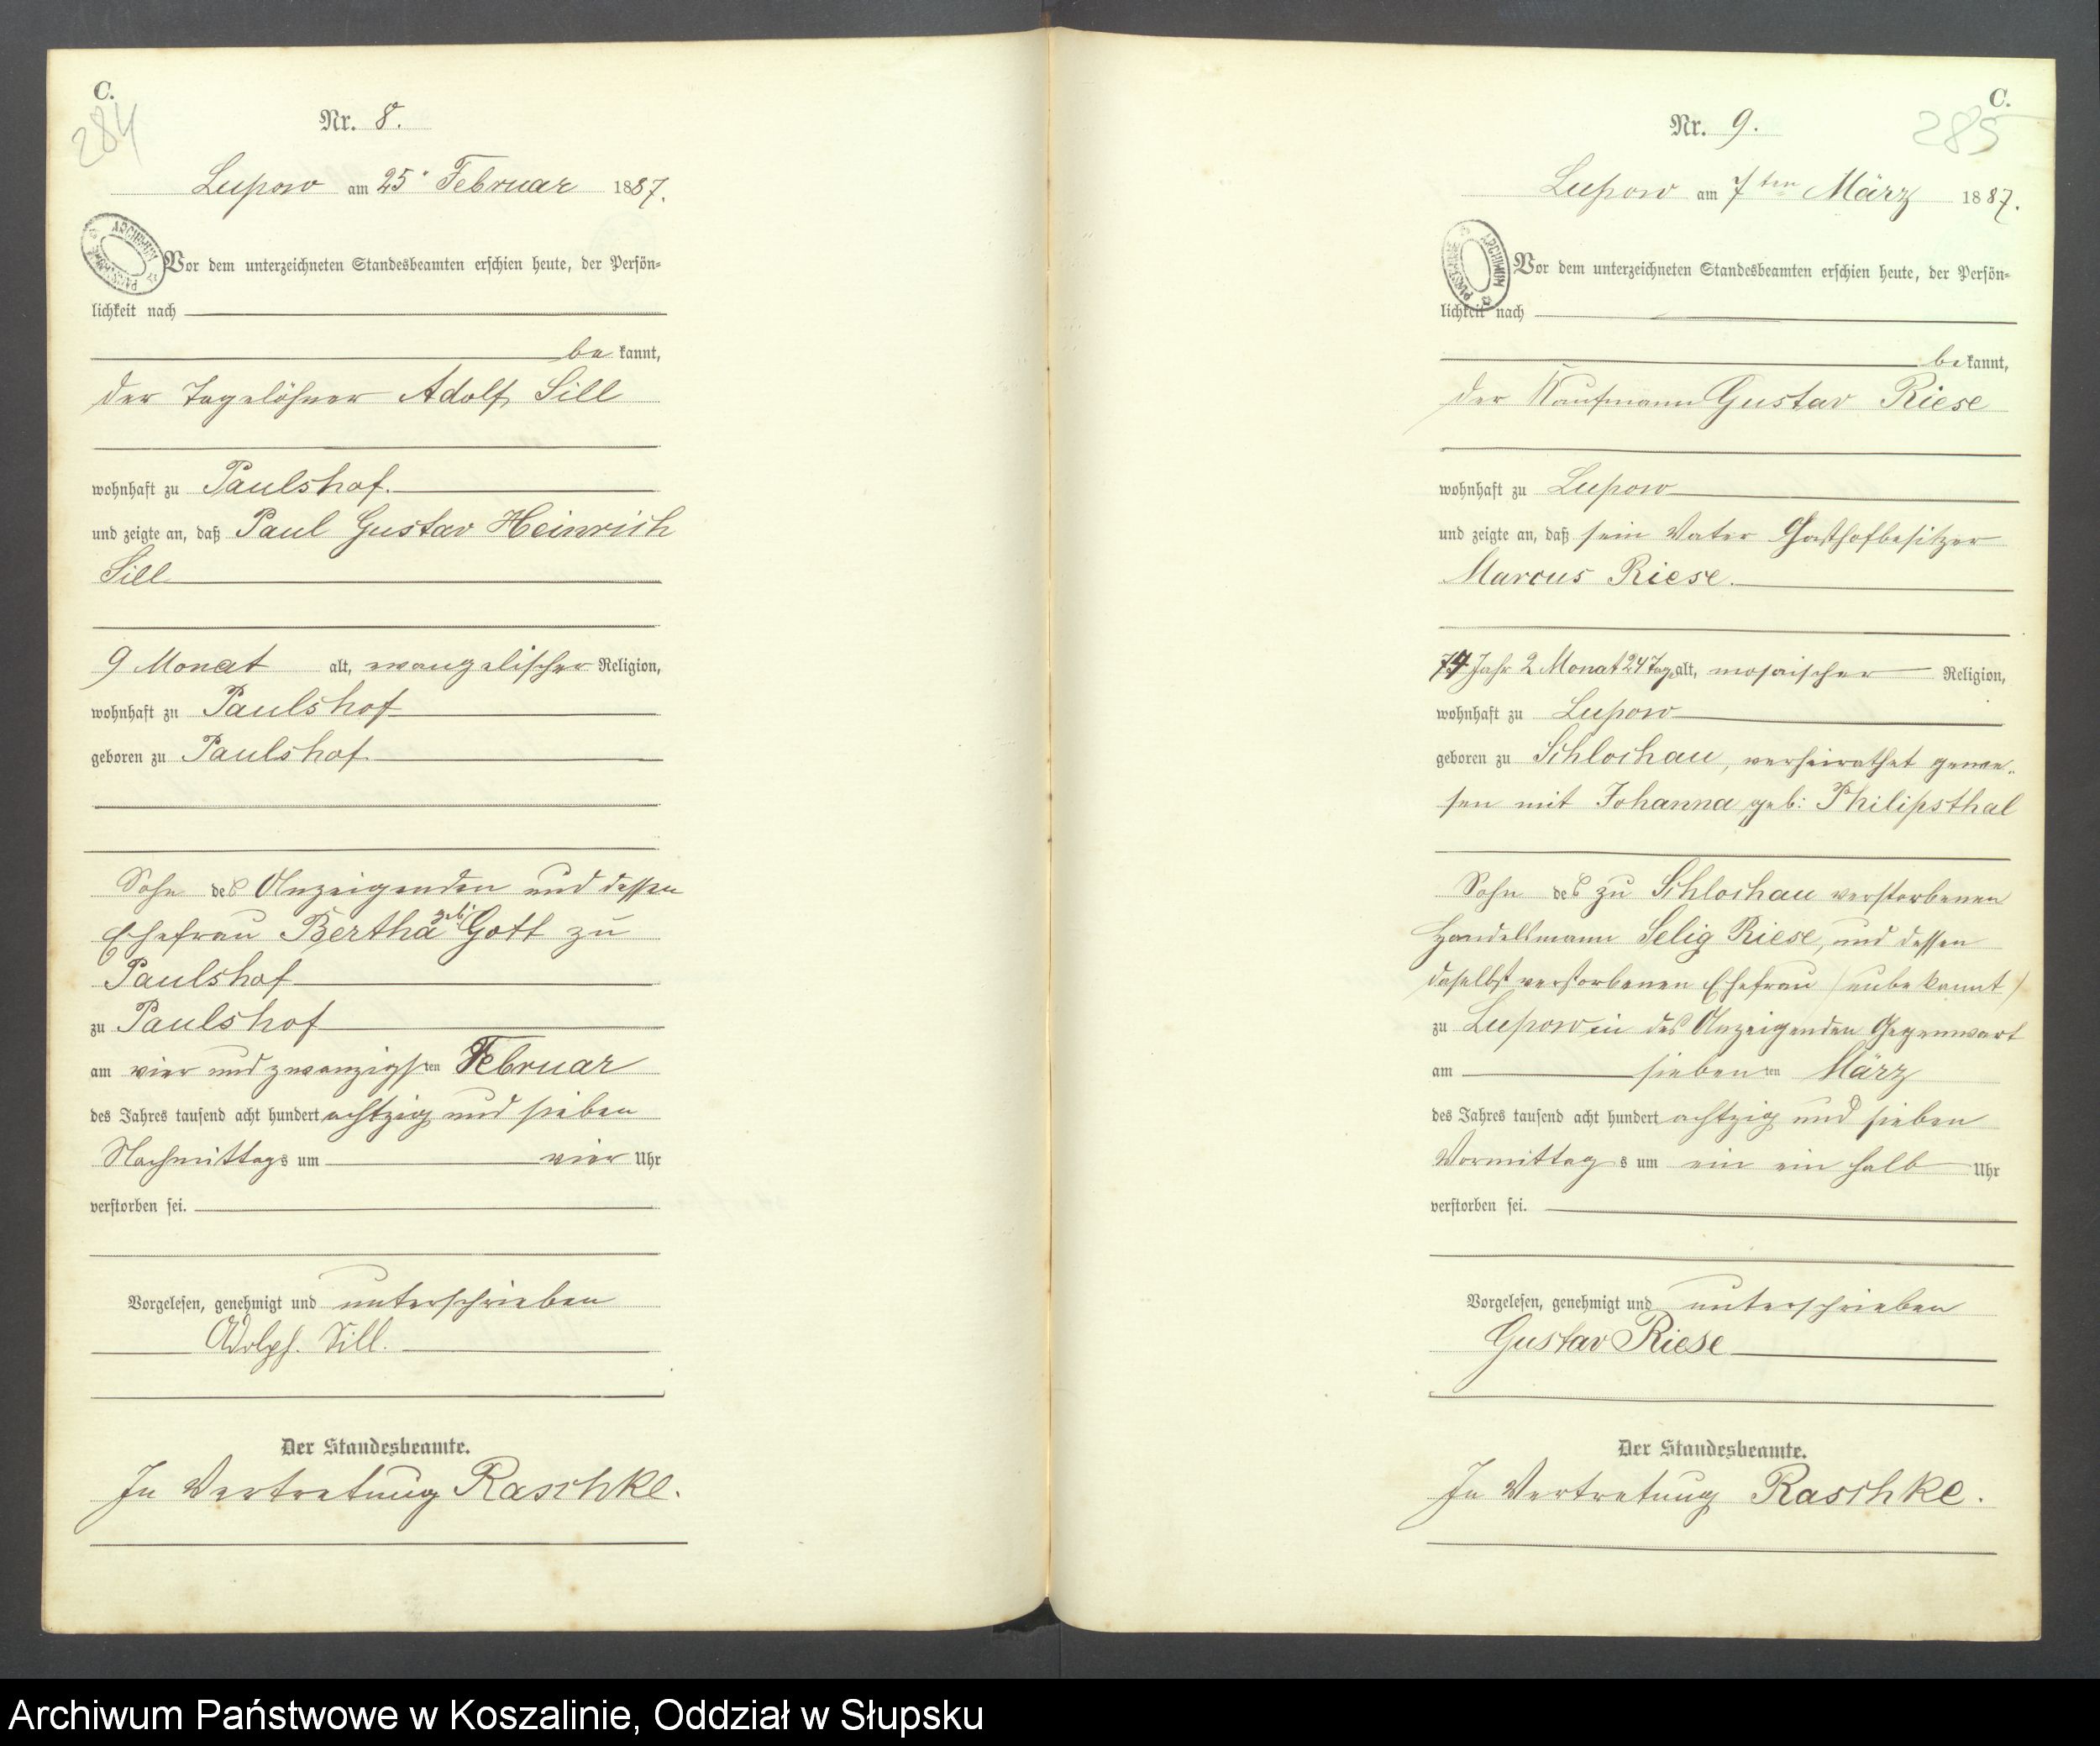 C.
284
Nr. 8.
Lupow am 25. Februar 1887.
Vor dem unterzeichneten Standesbeamten erschien heute, der Persön-
lichkeit nach
be kannt,
der Tagelöhner Adolf Sill
wohnhaft zu Paulshof.
und zeigte an, daß Paul Gustav Heinrich
Sill
9 Monat alt, evangelischer Religion,
wohnhaft zu Paulshof
geboren zu Paulshof
Sohn des Anzeigenden und dessen
Ehefrau Bertha geb: Gott zu
Paulshof
zu Paulshof
am vier und zwanzigsten Februar
des Jahres tausend acht hundert achtzig und sieben
Nachmittags um vier Uhr
verstorben sei.
Vorgelesen, genehmigt und unterschrieben
Adolph. Sill.
Der Standesbeamte.
In Vertretung Raschke.
C.
285
Nr. 9.
Lupow am 7ten März 1887.
Vor dem unterzeichneten Standesbeamten erschien heute, der Persön-
lichkeit nach
be kannt,
der Kaufmann Gustav Riese
wohnhaft zu Lupow
und zeigte an, daß sein Vater Gasthofbesitzer
Marcus Riese.
Jahr 2 Monat 24 Tage alt, mosaischer Religion,
wohnhaft zu Lupow
geboren zu Schlochau, verheirathet gewe-
sen mit Johanna geb: Philipsthal
Sohn des zu Schlochau verstorbenen
Handelsmann Selig Riese, und dessen
daselbst verstorbenen Ehefrau (unbekannt)
zu Lupow in des Anzeigenden Gegenwart
am siebenten März
des Jahres tausend acht hundert achtzig und sieben
Vormittags um ein ein halb Uhr
verstorben sei.
Vorgelesen, genehmigt und unterschrieben
Gustav Riese
Der Standesbeamte.
In Vertretung Raschke.
Archiwum Państwowe w Koszalinie, Oddział w Słupsku